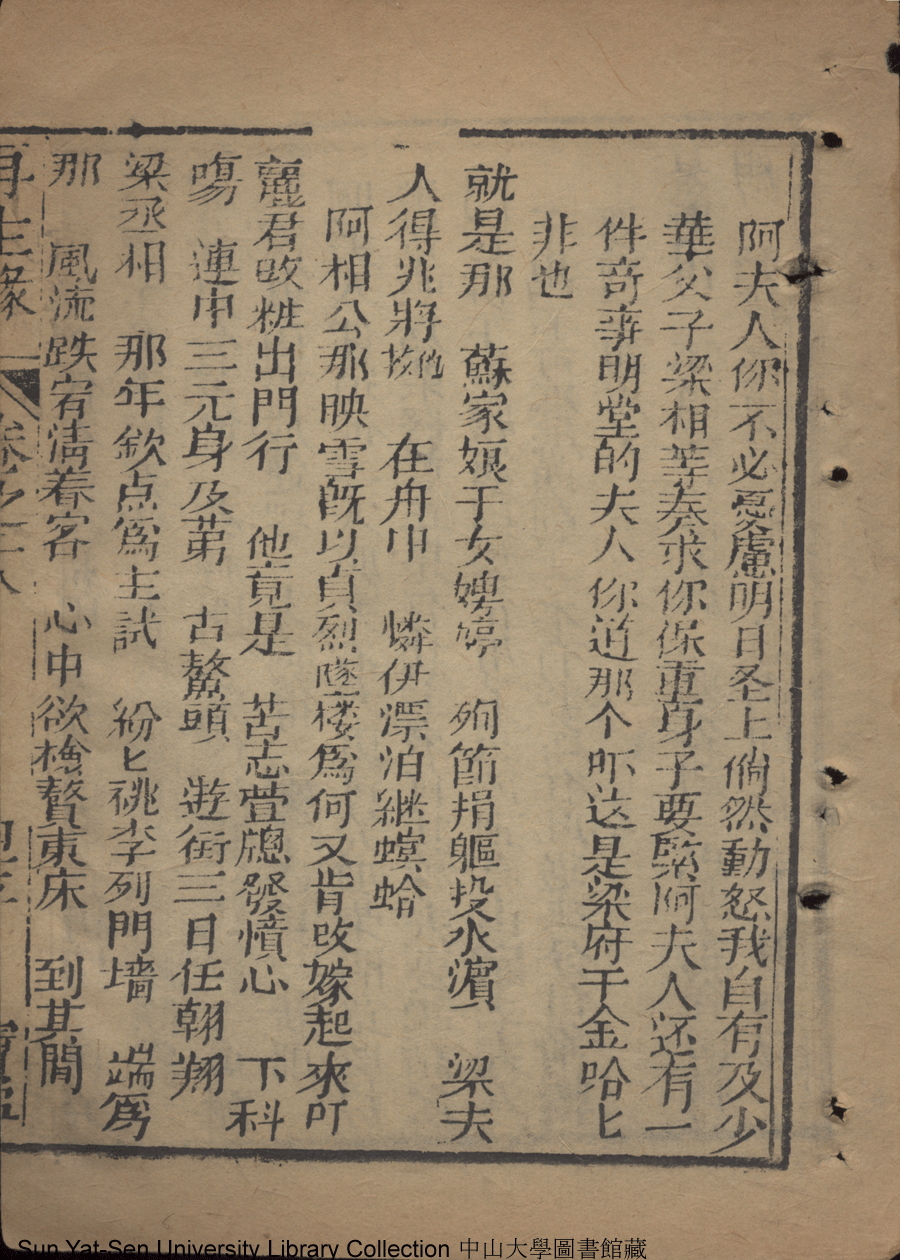 阿夫人你不必憂慮明日圣上倘然動怒我自有及少
華父子梁相等奏求你保重身子要緊阿夫人还有一
件竒事明堂的夫人你道那个吓这是梁府千金哈匕
非也
就是那　蘇家娘子女娉婷　殉節捐軀投水濵　梁夫
人得兆將他救　在舟中　憐伊漂泊継螟蛤
阿相公那映雪旣以貞烈墜楼爲何又肯改嫁起來叮
麗君改粧出門行　他竟是　苦志萤牕發憤心　下科
塲　連中三元身及苐　古鰲頭　遊街三日任翱翔
梁丞相　那年欽点爲主試　紛匕桃李列門墻　端爲
那　風流跌宕淸春客　心中欲檢贅東床　到其間
再生緣　卷之二
Sun Yat-Sen University Library Collection 中山大學圖書館藏